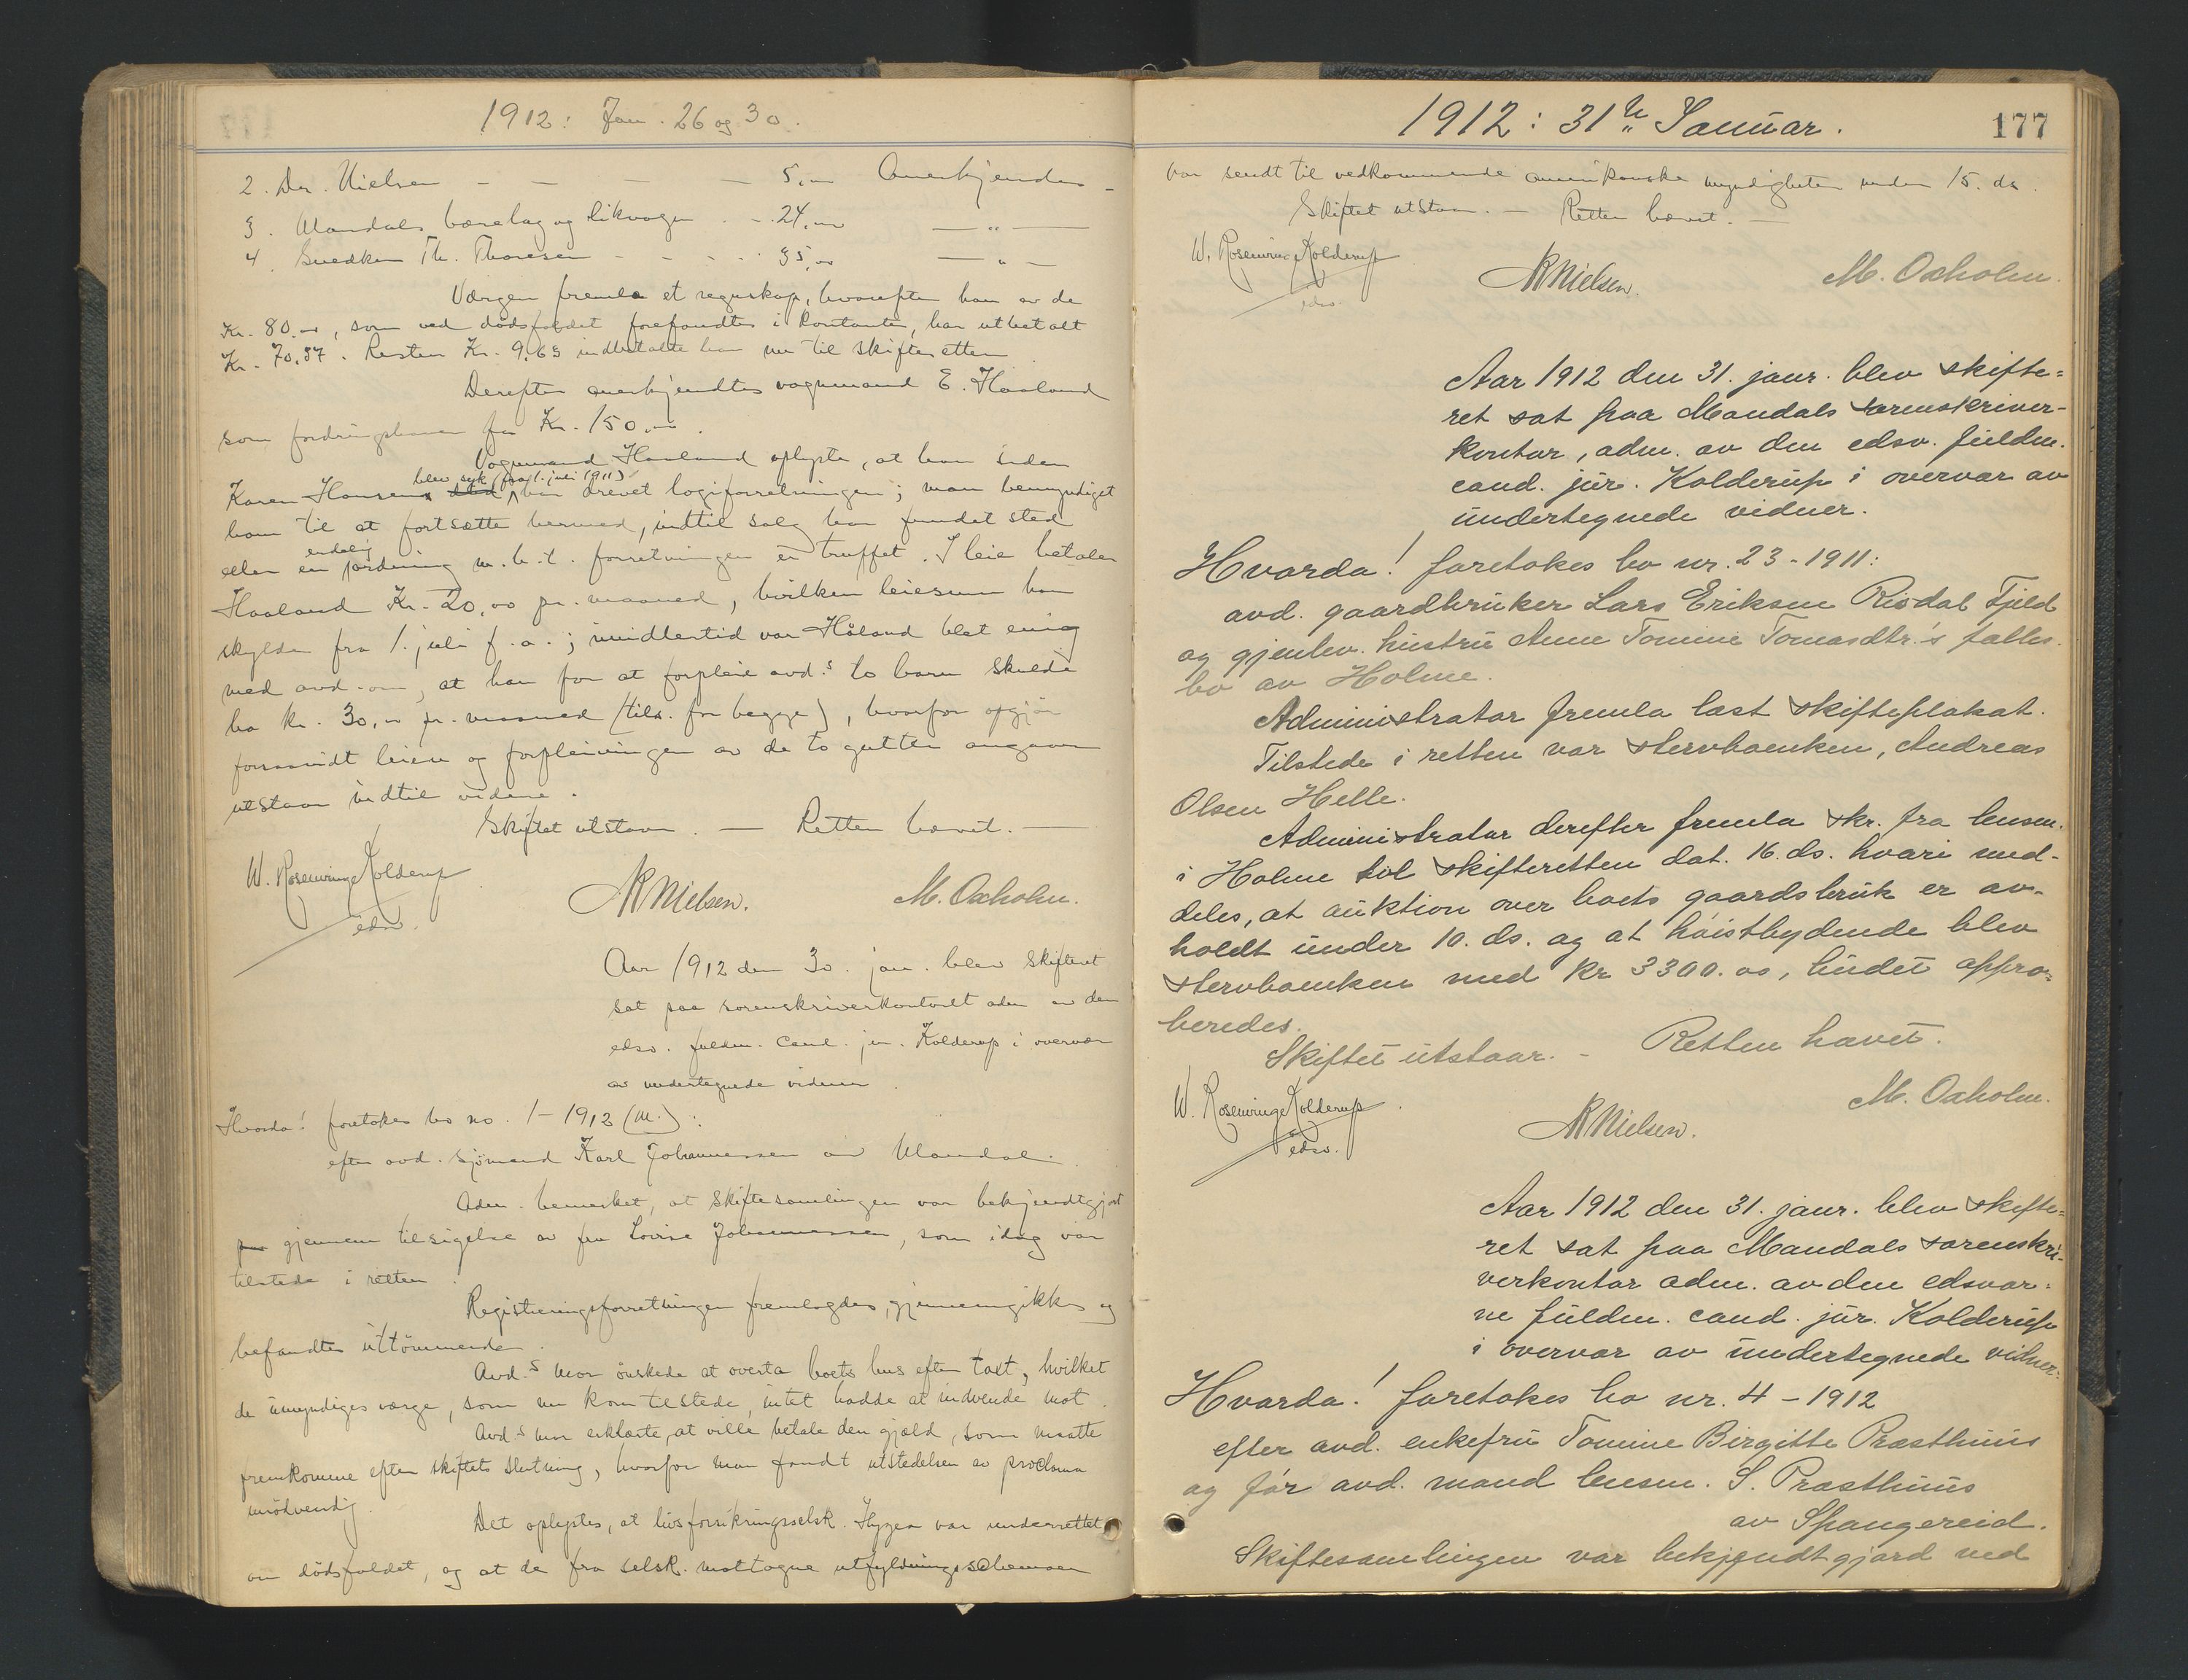 1912: Jan. 26 og 30.
2. Dr. Nielsen — — — — 5,00 Anerkjendes
3. Mandals bærelag og likvogn . - . 24,00 — „ —
4. Snedker Th. Thoresen - - - - 35,00 — „ —
Værgen fremla et regnskap, hvorefter han av de
Kr. 80.00, som ved dödsfaldet forefandtes i kontanter, har utbetalt
Kr. 70,37. Resten Kr. 9,63 indbetalte han nu til skifteretten
Derefter anerkjendtes vognmand E. Haaland
som fordringshaver for Kr. 150.00.
Vognmand Haaland oplyste, at han siden
blev syk (fra 1. juli 1911)
Karen Hansen har drevet logiforretningen; man bemyndiget
ham til at fortsætte hermed, indtil salg har fundet sted
endelig
eller en ordning m.h.t. forretningen er truffet. I leie betaler
Haaland Kr. 20,00 pr. maaned, hvilken leiesum han
skylder fra 1. juli f.a.; imidlertid var Håland blet enig
med avd. om, at han for at forpleie avd.s to barn skulde
ha kr. 30,00 pr. maaned (tils. for begge), hvorfor opgjör
forsaavidt leien og forpleiningen av de to gutter angaar
utstaar indtil videre.
Skiftet utstaar. — Retten hævet. —
W. Rosenvinge Kolderup
edsv.
NNielsen.
M. Oxholm.
Aar 1912 den 30. jan. blev skifteret
sat paa sorenskriverkontoret adm. av den
edsv. fuldm. cand. jur. Kolderup i overvær
av undertegnede vidner.
Hvorda! foretokes bo no. 1 - 1912 (M.):
efter avd. sjömand Karl Johannessen av Mandal.
Adm. bemerket, at skiftesamlingen var bekjendtgjort
gjennem tilsigelse av fru Lovise Johannessen, som idag var
tilstede i retten.
Registreringsforretningen fremlagdes, gjennemgikkes og
befandtes uttömmende.
Avd.s mor önskede at overta boets hus efter taxt, hvilket
de umyndiges værge, som nu kom tilstede, intet hadde at indvende mot.
Avd.s mor erklærte, at ville betale den gjæld, som maatte
fremkomme efter skiftets slutning, hvorfor man fandt utstedelsen av proclama
unödvendig.
Det oplystes, at livsforsikringsselsk. Hygea var underrettet
om dödsfaldet, og at de fra selsk. mottagne utfyldningsschemaer
1912: 31te Januar. 177
var sendt til vedkommende amerikanske myndigheter under 15. ds.
Skiftet utstaar. — Retten hævet. —
W. Rosenvinge Kolderup
edsv.
NNielsen.
M. Oxholm.
Aar 1912 den 31. janr. blev skifte=
ret sat paa Mandals sorenskriver-
kontor, adm. av den edsv. fuldm.
cand. jur. Kolderup i overvær av
undertegnede vidner.
Hvorda! foretokes bo nr. 23 - 1911:
avd. gaardbruker Lars Eriksen Risdal Fjeld
og gjenlev. hustru Anne Tomine Tomasdtr.'s fælles.
bo av Holme.
Administrator fremla læst skifteplakat.
Tilstede i retten var stervboenken, Andreas
Olsen Helle.
Administrator derefter fremla skr. fra lensm.
i Holme til skifteretten dat. 16. ds. hvori med-
deles, at auktion over boets gaardsbruk er av-
holdt under 10. ds. og at höistbydende blev
stervboenken med kr 3300.00, budet appro=
beredes.
Skiftet utstaar. - Retten hævet.
W. Rosenvinge Kolderup
edsv.
NNielsen.
M. Oxholm.
Aar 1912 den 31. janr. blev skifte=
ret sat paa Mandals sorenskri-
verkontor adm. av den edsvor=
ne fuldm. cand. jur. Kolderup
i overvær av undertegnede vidner.
Hvorda! foretokes bo nr. 4 - 1912
efter avd. enkefru Tomine Birgitte Præsthuus
og för avd. mand lensm. S. Præsthuus
av Spangereid.
Skiftesamlingen var bekjendtgjord ved